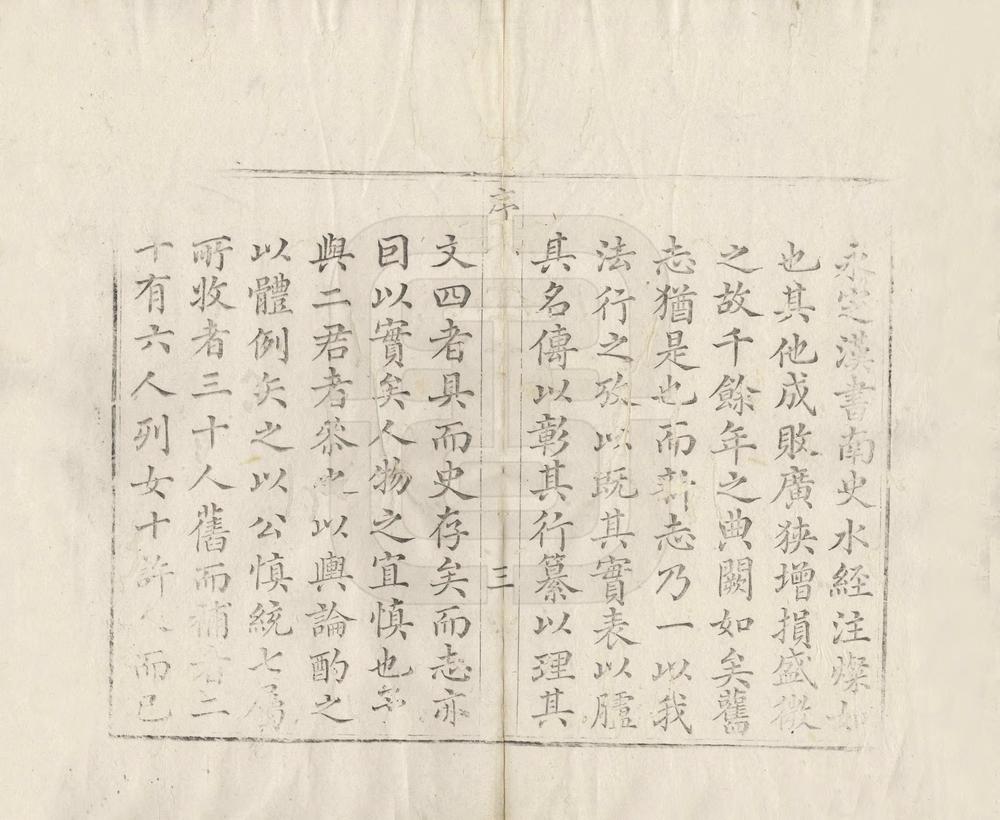 永定漢書南史水経注燦如
也其他成敗廣狹増損盛微
之故千餘年之典闕如矣舊
志猶是也而新志乃一以我
法行之攷以既其實表以臚
其名傳以彰其行纂以理其
序 三
文四者具而史存矣而志亦
曰以實矣人物之宜慎也
與二君者叅之以輿論酌之
以體例矢之以公慎統七屬
所收者三十人舊而補者二
十有六人列女十許人而已